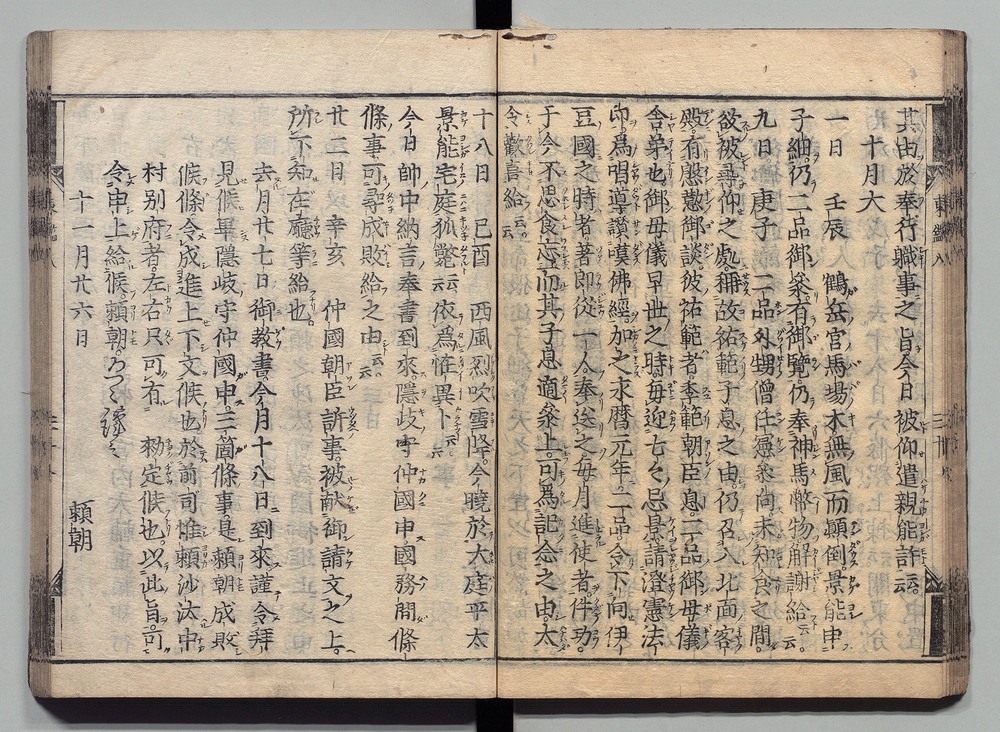 其由於奉行職事之旨今日被仰遣親能許云云
十月大
一日　壬辰　鶴岳宮馬場木無風而顛倒景能申
子細仍二品御參有御覽仍奉神馬幣物解謝給云云
九日庚子　二品外甥僧任憲參向未知食之間
欲被尋仰之處稱故祐範子息之由仍召入北面客
殿有慇懃御談彼祐範者季範朝臣息二品御母儀
舍弟也御母儀早世之時每迎七々忌景請澄憲法
印爲唱導讃嘆佛經加之永曆元年二品令下向伊
豆國之時者著郎從一人奉送之每月進使者件功
于今不思食忘而其子息適參上可爲記念之由太
令歡喜給云云
十八日　己酉　西風烈吹雪降今曉於大庭平太
景能宅庭狐斃云云依爲恠異卜云云
今日帥中納言奉書到來隱岐守仲國申國務間條
條事可尋成敗給之由云云
廿二日辛亥　仲國朝臣訴事被献御請文之上
所下知在廳等給也
去月廿七日御教書今月十八日到來謹令拜
見候畢隱岐守仲國申三箇條事是賴朝成敗
候條令成進上下文候也於前司惟賴沙汰中
村別府者左右只可有　勅定候也以此旨可
令申上給候賴朝
十一月廿六日　賴朝
東鑑八